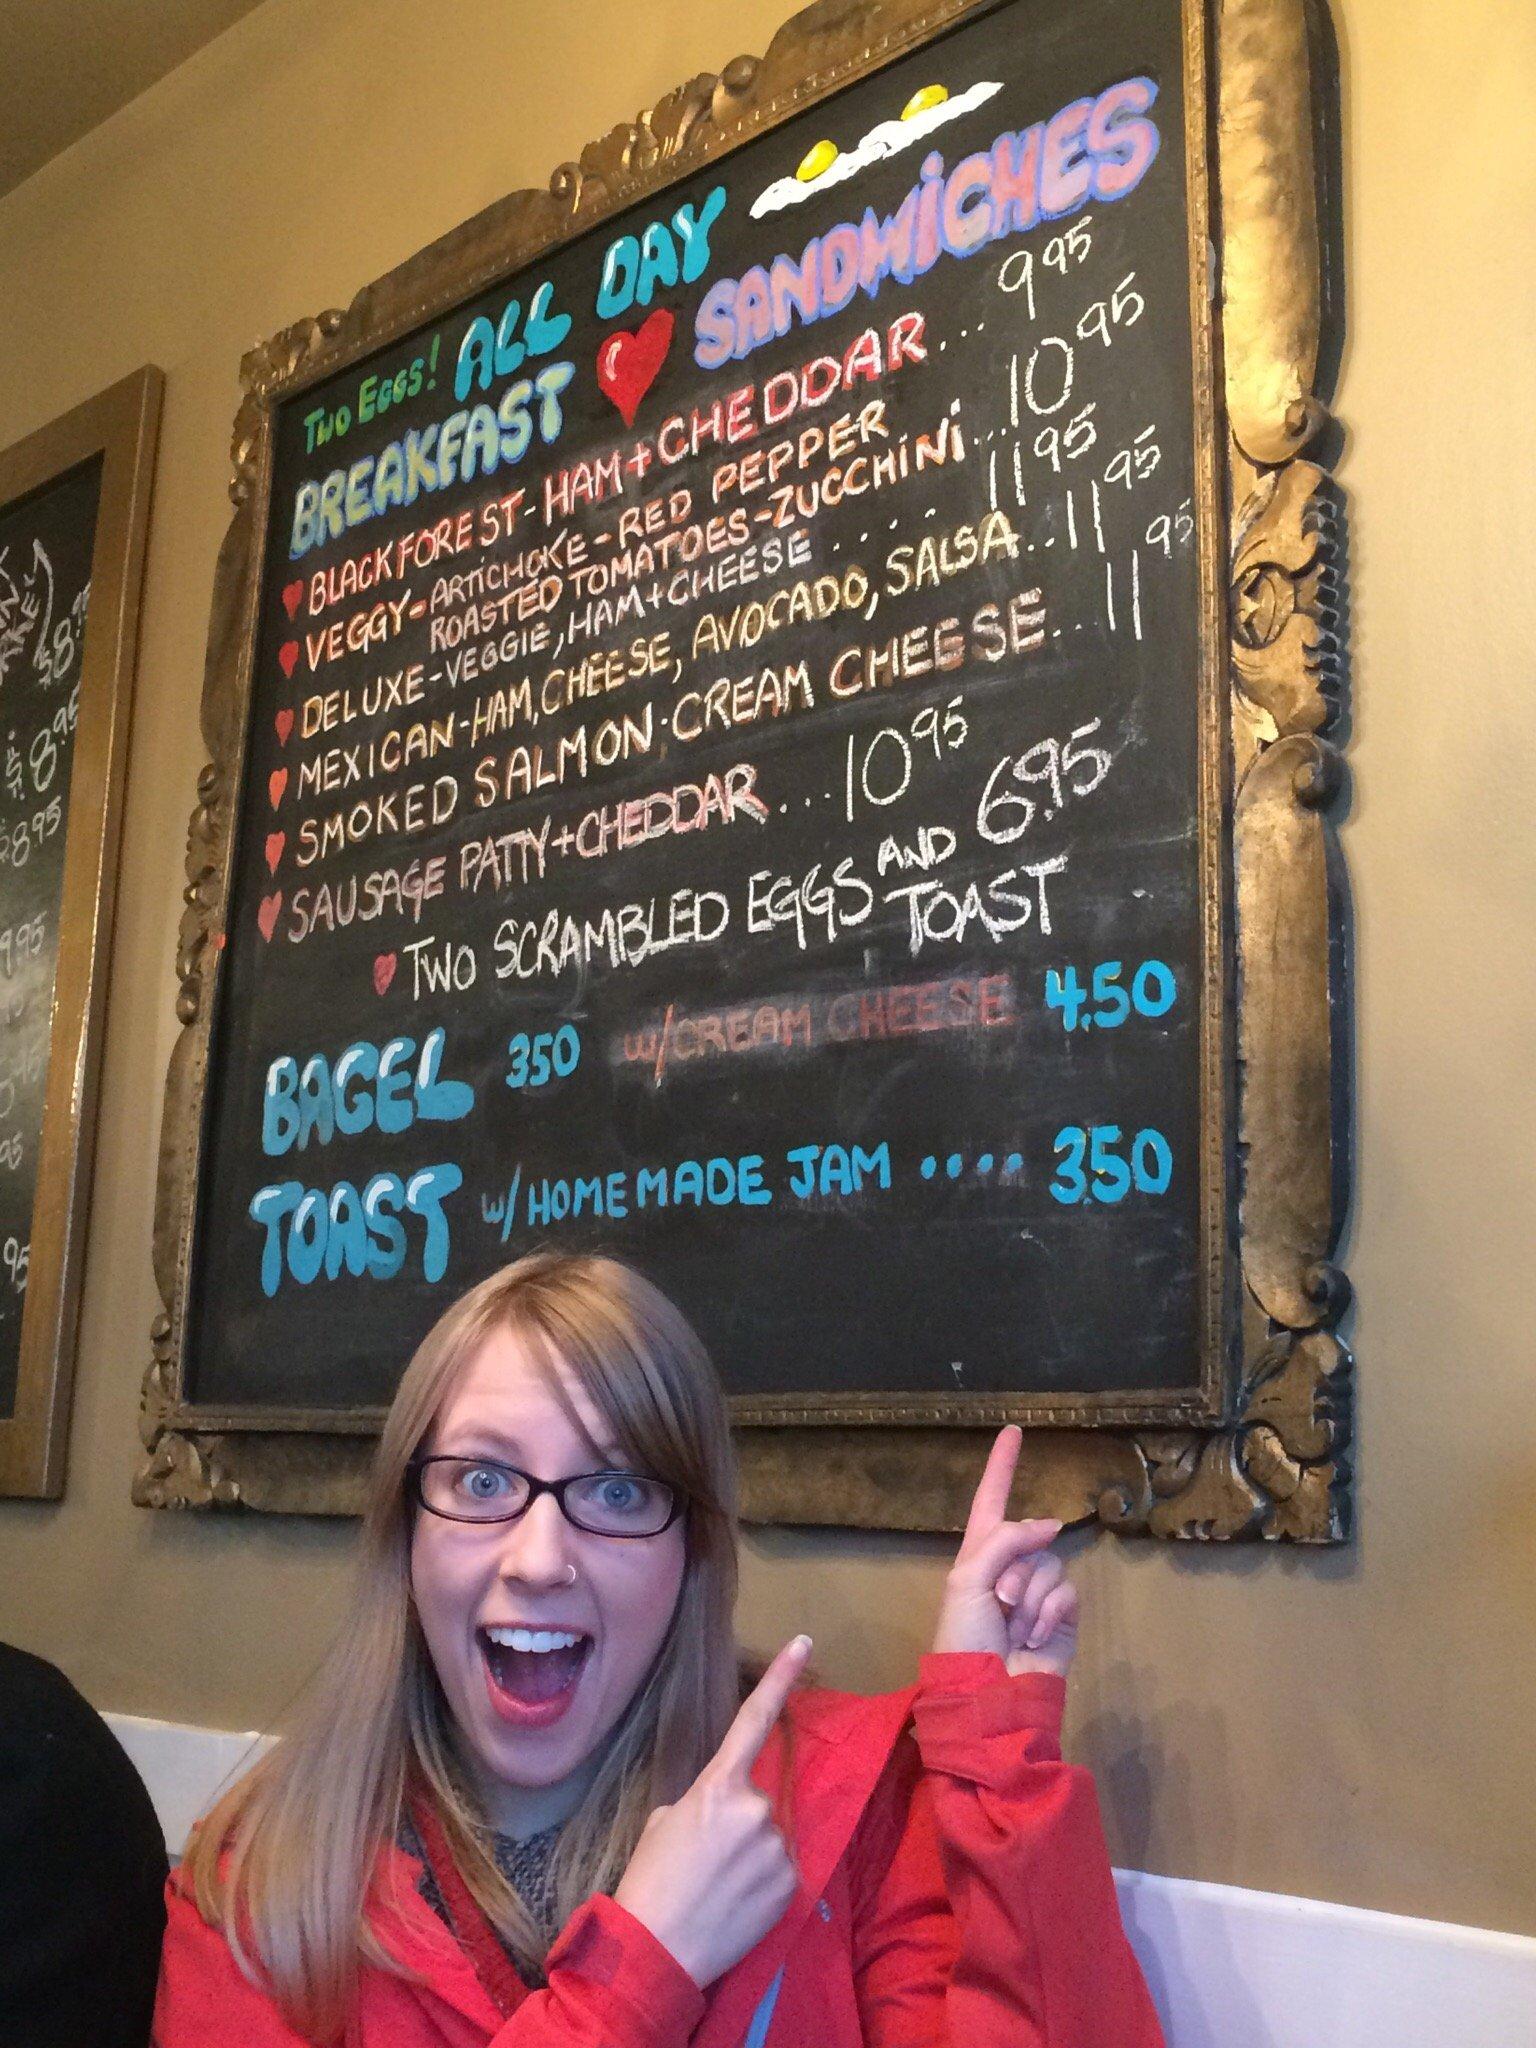 TWO EGGS! ALL DAY
BREAKFAST SANDWICHES
BLACKFOREST-HAM+CHEDDAR... 9 95
VEGGY-ARTICHOKE-RED PEPPER
ROASTED TOMATOES-ZUCCHINI... 10 95
DELUXE-VEGGIE, HAM+CHEESE..... 11 95
MEXICAN-HAM, CHEESE, AVOCADO, SALSA.. 11 95
SMOKED SALMON-CREAM CHEESE... 11 95
SAUSAGE PATTY+CHEDDAR... 10 95
TWO SCRAMBLED EGGS AND TOAST 6.95
BAGEL 350 w/CREAM CHEESE 4.50
TOAST w/HOMEMADE JAM .... 3.50
$8.95
8.95
8.95
9.95
95
95